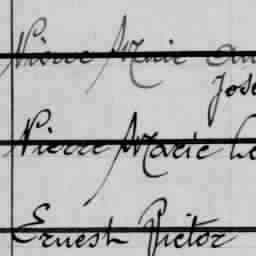 Pierre Marie
José
Pierre Marie
Ernest Victor